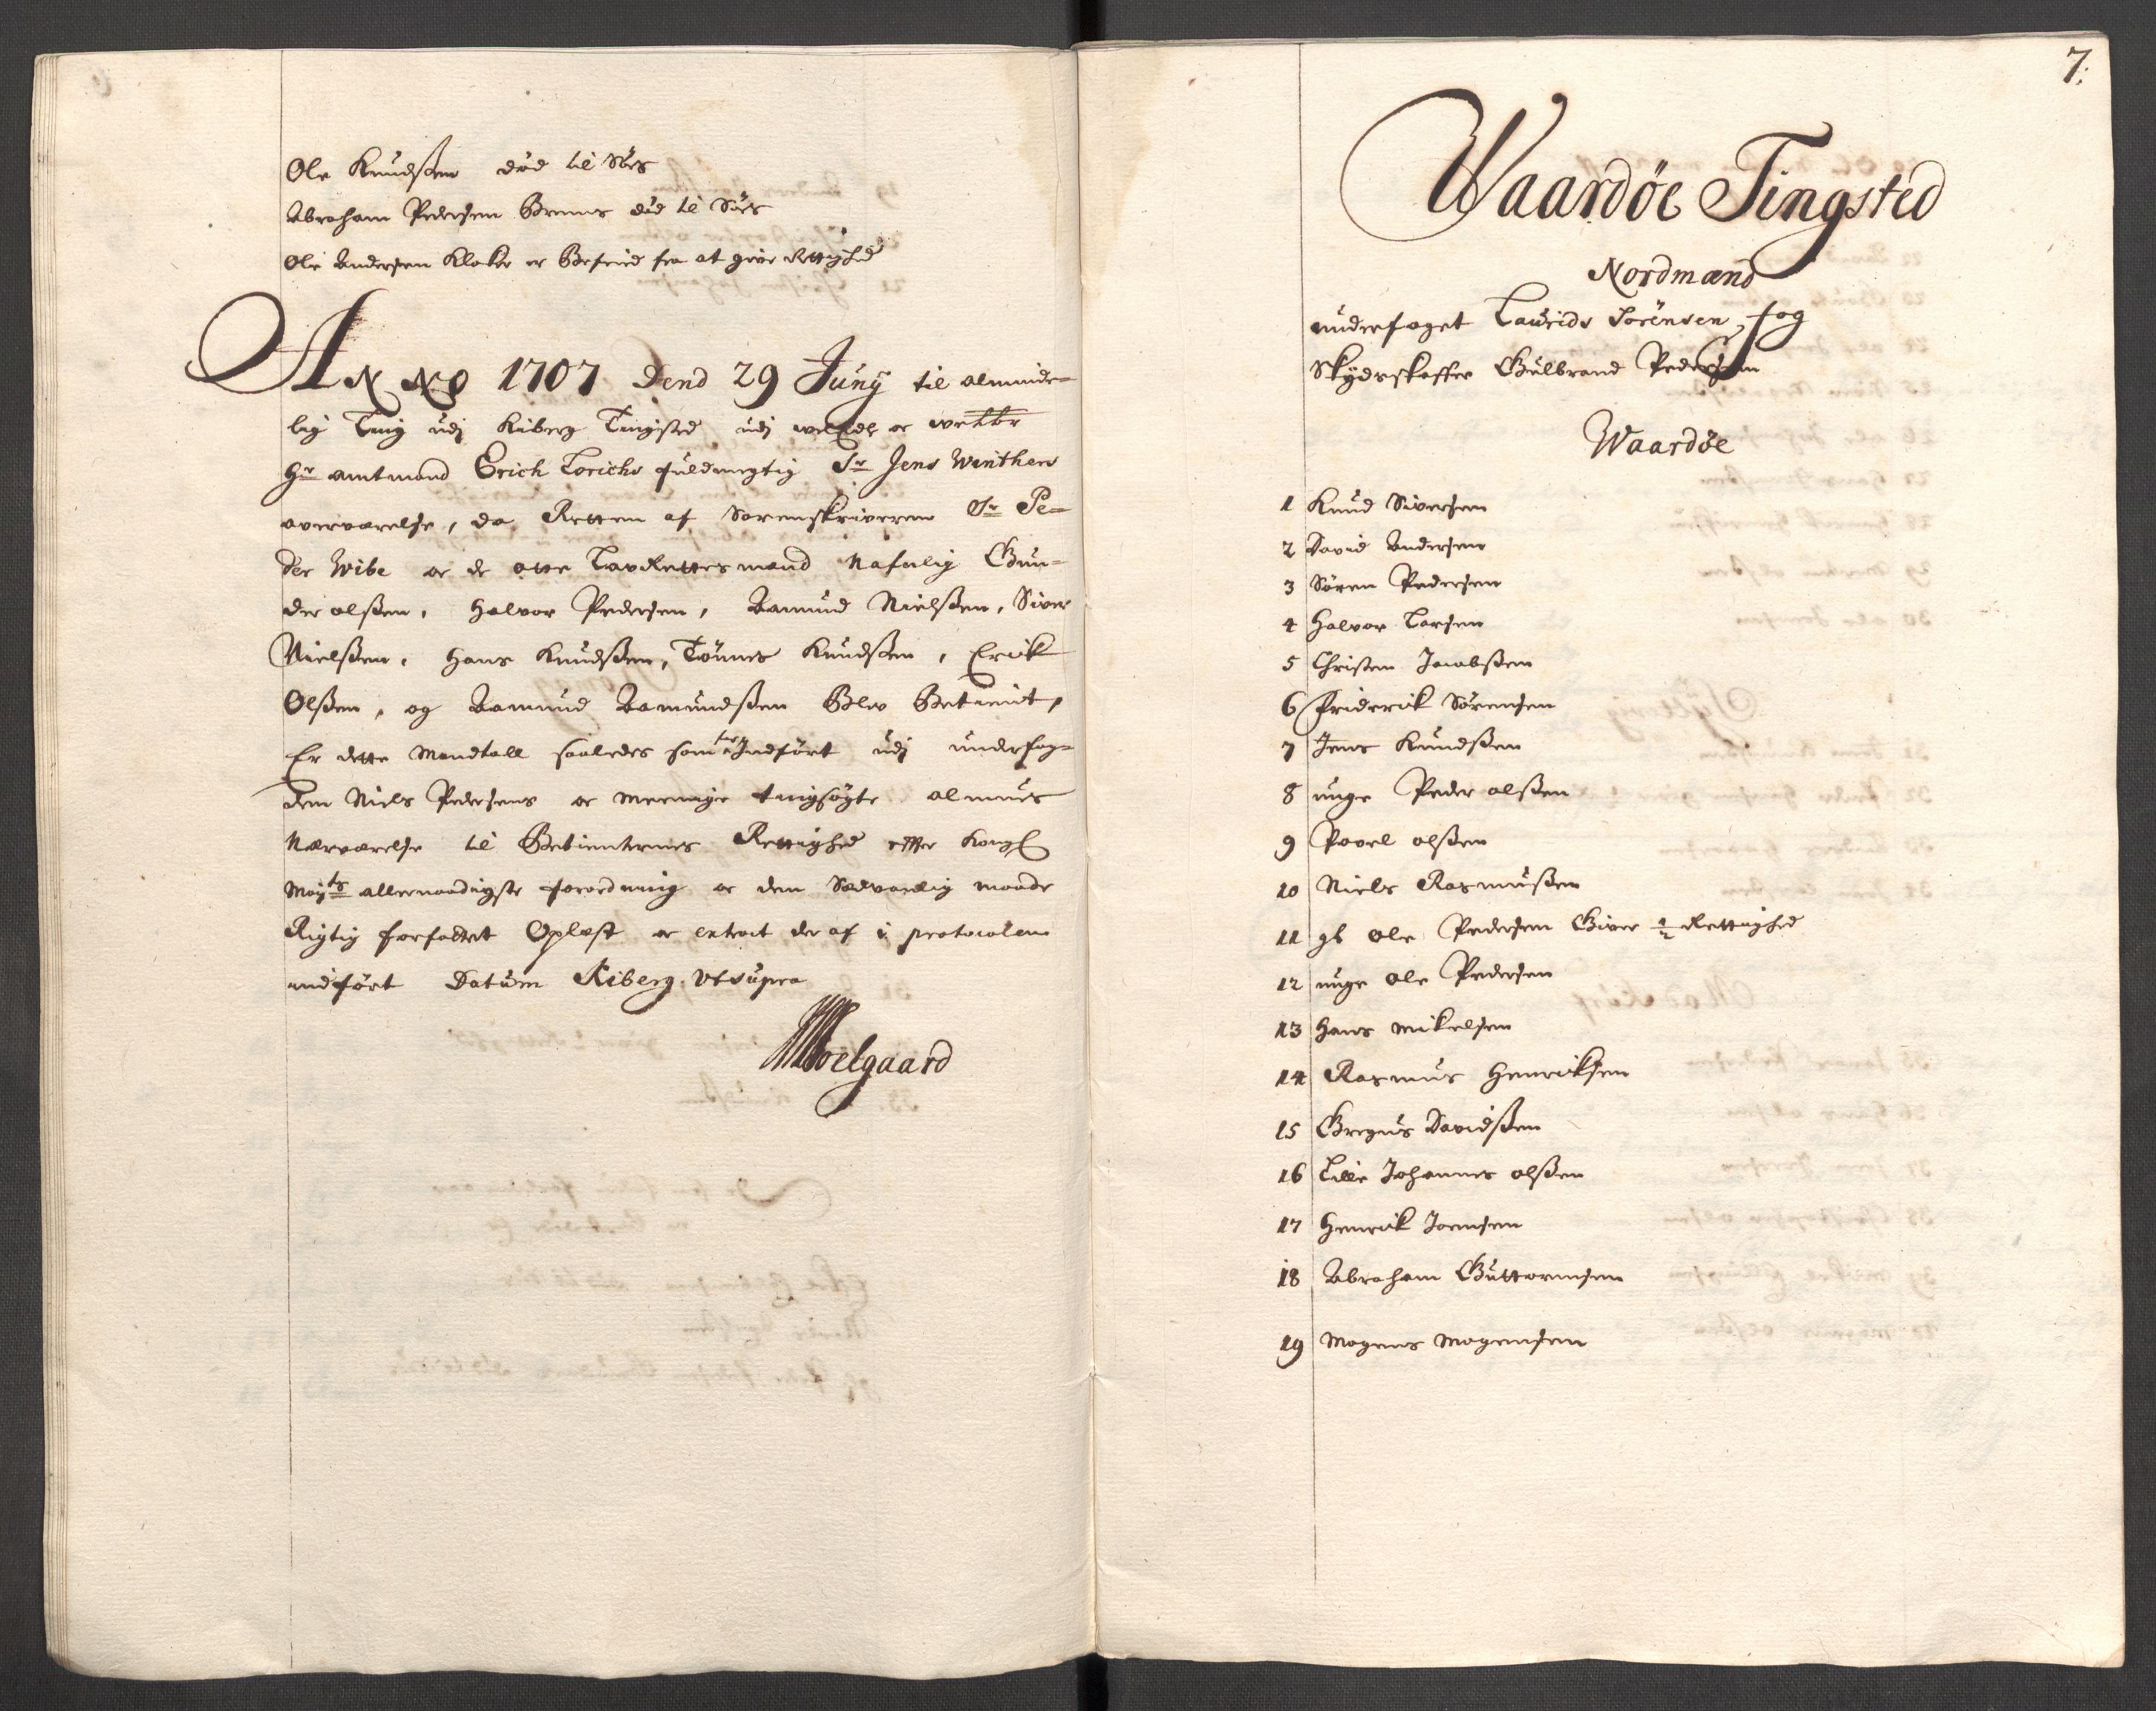 Ole Knudssen død til Søes
Abraham Pedersen Bremnes død til Søes
Ole Andersen Klokr er Befried fra at give Rettighed
ANNO 1707 Dend 29 Junÿ til alminde=
lig Ting udj Kiberg Tingsted udj
Hr amtmand Erich Lorichs fuldmegtig Sr Jens Winthers
overværelse, da Retten af Sorenskriveren Sr Pe=
der Wibe og de otte LavRettesmænd Nafnlig Gun=
der olssen, Halvor Pedersen, Aamund Nielssen, Siver
Nielssen, Hans Knudssen, Tönnes Knudssen, Erick
Olssen, og Aamund Aamundssen Blev Betient,
Er dette Mandtall saaledes som her Indført udj underfog=
den Niels Pedersens og meenige tingsøgte almues
Nærværelse til Betienternes Rettighed efter Kongl
Mayts allernaadigste forordning og den Sædvanlig maade
Rigtig forfattet Oplæst og extract der af i protocolen
indført Datum Kiberg. Ut supra
Woelgaard
7.
Waardöe Tingsted
Nordmænd
underfoget Laurids Sörensen, og
Skÿdsskaffer Gulbrand Pedersen
Waardöe
1 Knud Siversen
2 David Andersen
3 Søren Pedersen
4 Halvor Larsen
5 Christen Jacobssen
6 Friderick Sørensen
7 Jens Knudssen
8 unge Peder olssen
9 Povel olssen
10 Niels Rasmussen
11 gl Ole Pedersen Giver 1/2 Rettighed
12 unge Ole Pedersen
13 Hans Mikelsen
14 Rasmus Henriksen
15 Gregus Davidssen
16 Lille Johannes olssen
17 Henrick Joensen
18 Abraham Guttormsen
19 Mogens Mogensen